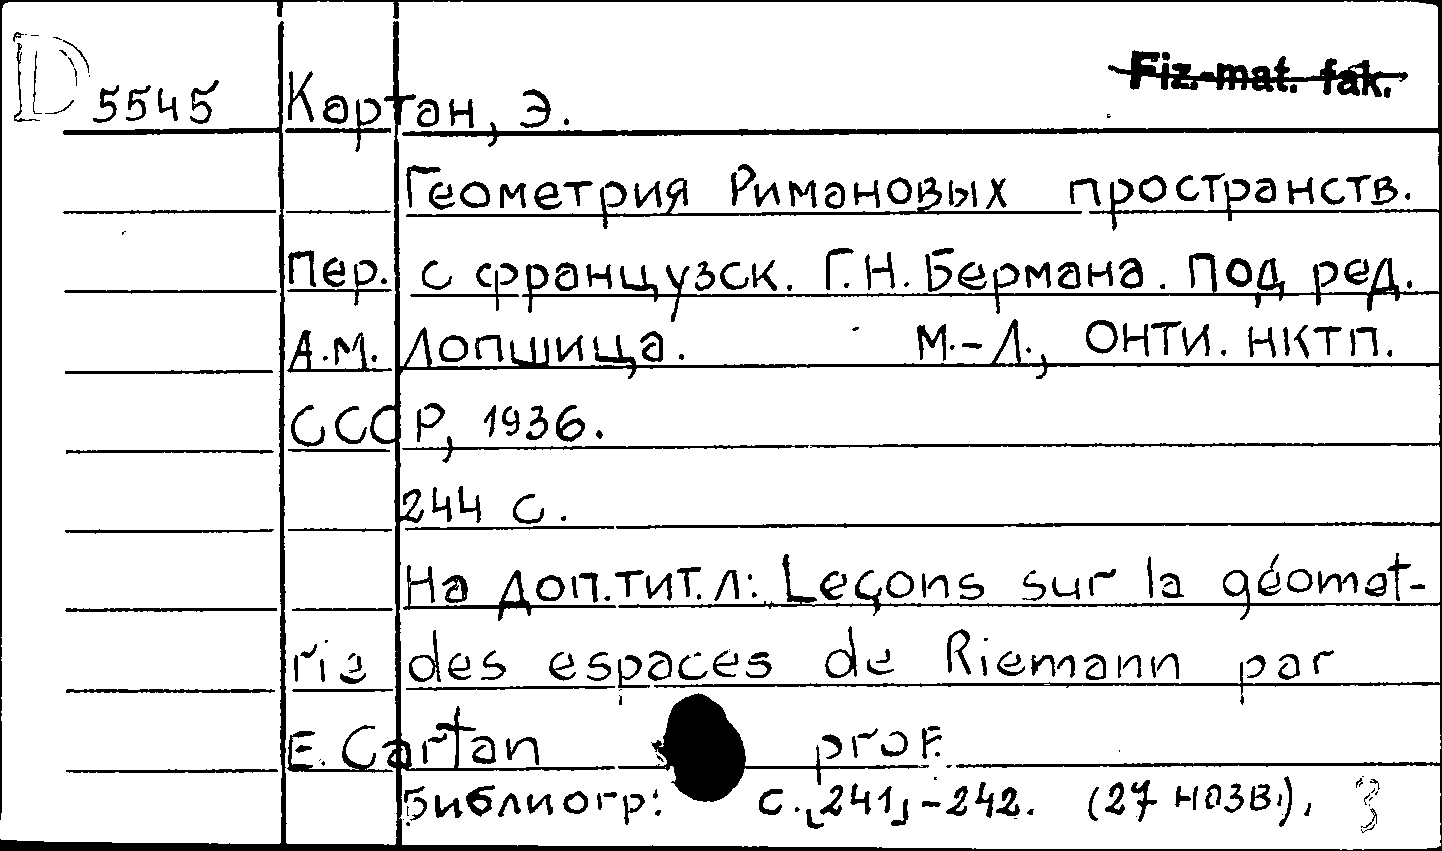 Fiz.-mat. fak.
D 5545 Картан, Э.
Геометрия Римановых пространств.
Пер. с французск. Г.Н. Бермана. Под ред.
А.М. Лопшица. М.-Л., ОНТИ. НКТП.
СССР, 1936.
244 с.
На доп.тит.л: Leçons sur la géomet-
rie des espaces de Riemann par
E. Cartan prof.
Библиогр: с.[241]-242. (27 назв.). 3